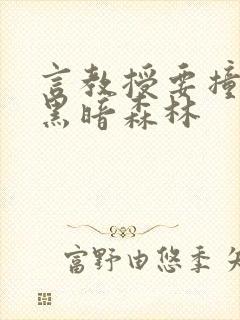 言教授要撞
黑暗森林
富野由悠季